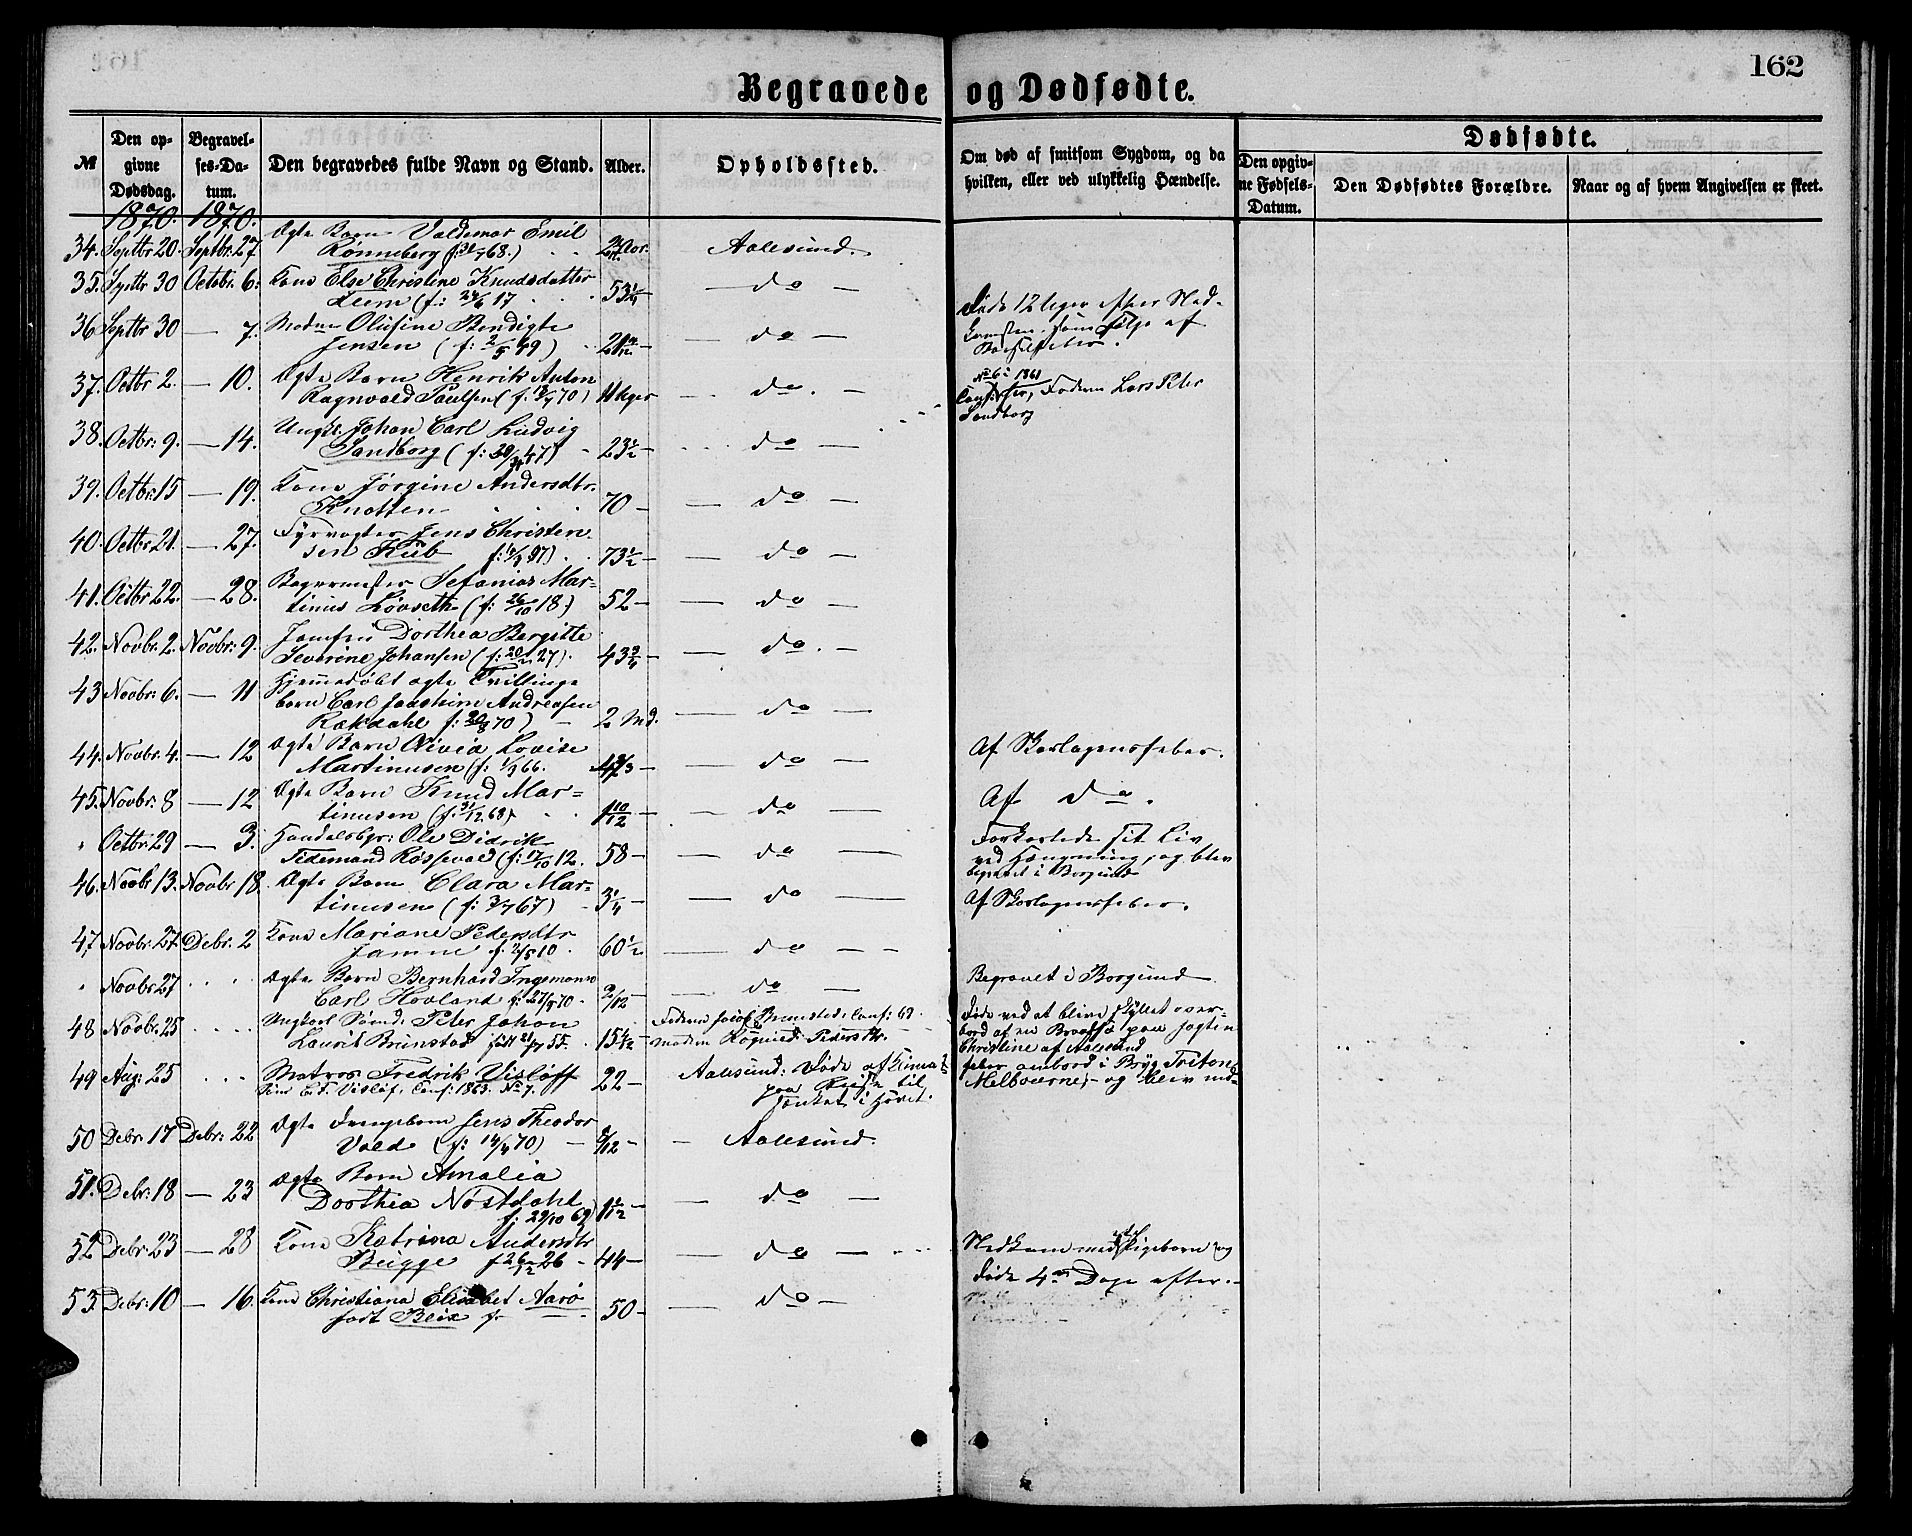 162
Begravede og Dødfødte.
№
Den op-
givne
Dødsdag.
Begravel-
ses-Da-
tum.
Den begravedes fulde Navn og Stand.
Alder.
Opholdssted.
Om død af smitsom Sygdom, og da
hvilken, eller ved ulykkelig Hændelse.
Dødfødte.
Den opgiv-
ne Fødsels-
Datum.
Den Dødfødtes Forældre.
Naar og af hvem Angivelsen er skeet.
1870. 1870.
34. Septbr 20. Septbr. 27 Ægte Barn Valdemar Emil
Rønneberg Aalesund.
35. Septbr 30 Octobr. 6. Kone Else Christine Knudsdatter
(f: 24/6 17 53 1/4 — do —
36 Septbr 30 — 7. Madme Olufine Bendigte
Jensen (f: 2/5 49) — do — Døde 12 Uger efter Ned-
komsten, som Følge af
37. Octbr 2. — 10. Ægte Barn Henrik Anton
Ragnvald Paulsen 11 Uger — do. — No 6 i 1861
Faderen Lars Peter
Sandborg
38. Octbr. 9. — 14. Ungk. Johan Carl Ludvig
Sandborg 23 1/2 — do —
39. Octbr. 15 — 19. Kone Jørgine Andersdtr.
Knotten 70 — do —
40. Octbr. 21. — 27. Fyrvogter Jens Christen
sen Kub 73 1/2 — do —
41. Octbr 22. — 28. Bagermester Sefanias Mar-
tinus Løvseth (f: 26/10 18.) 52 — do —
42. Novbr. 2. Novbr. 9. Jomfru Dorthea Bergitte
Severine Johansen 43 3/4 — do. —
43 Novbr. 6. — 11 Hjemmedøbt ægte Tvillinge
barn Carl Joachim Andreasen
Rakdahl 2 Md. — do —
44. Novbr. 4. — 12 Ægte Barn Olivia Lovise
Martinusen (f: 1/3 66. — do — Af Skarlagensfeber.
45. Novbr. 8 — 12 Ægte Barn Knud Mar-
tinusen (f: 31/12 68) 1 10/12 — do — Af do.
" Octbr. 29 — 3. Handelsbgr: Ole Didrik
Tidemand Røssevold (f: 17/10 12. 58 — do — Forkortede sit Liv
ved Hængning, og blev
begravet i Borgund
46. Novbr 13. Novbr 18. Ægte Barn Clara Mar-
tinusen 3 1/4 — do — Af Skarlagensfeber.
47 Novbr. 27. Debr. 2 Kone Mariane Pedersdtr
60 1/2 — do —
" Novbr 27 Ægte Barn Bernhard Ingemann
Carl Hovland 2/12 — do — Begravet i Borgund
48 Novbr. 25 Ungkarl Sømd: Peter Johan
Laurits Brunstad 15 1/2 — Faderen Jacob Brunsted
Pedersdtr. Døde ved at blive skyllet over-
bord af en Braadsø paa Jagten
Christine af Aalesund
49 Aug. 25 Matros Fredrik Visløff
Conf: 1863. No 7. 22 — Aalesund: Døde af
paa Reise til
i Havet. feber ombord i Brig Triton
Melbourne, og blev ned-
50 Debr. 17 Debr. 22 Ægte Drengebarn Jens Theodor
Vold 8/12 — Aalesund.
51. Debr. 18 — 23 Ægte Barn Amalia
Dorthea Nøstdahl
f: 29/10 69) — do —
52 Debr 23 — 28 Kone Katrina Andersdtr
Bugge f 26/12 26 44 — do — Nedkom med Pigebarn og
døde 4re Dage efter.
53. Debr. 10 — 16. Kone Christiana Elisabet Aarø
født Blix 50 — do —